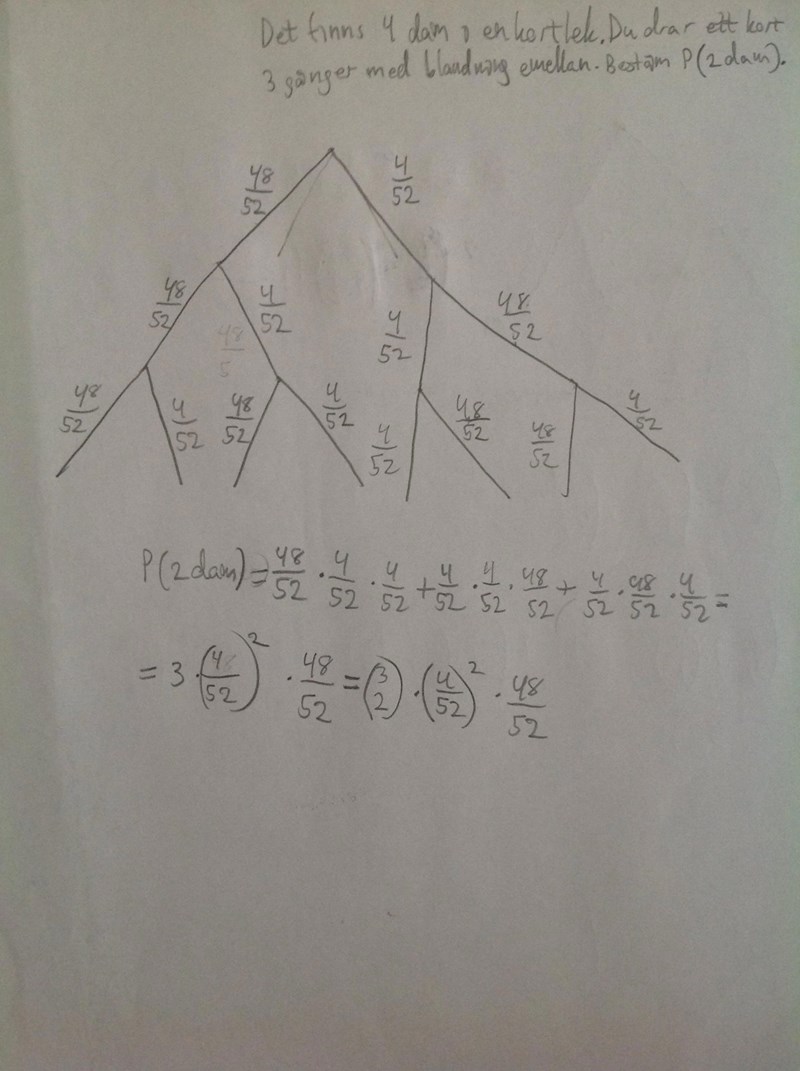 Det finns 4 dam i en kortlek. Du drar ett kort
3 gånger med blandning emellan. Bestäm P(2 dam).
48/52 4/52
48/52 4/52 4/52 48/52
48/52 4/52 48/52 4/52 4/52 48/52 48/52 4/52
P(2 dam) = 48/52 · 4/52 · 4/52 + 4/52 · 4/52 · 48/52 + 4/52 · 48/52 · 4/52 =
= 3 · (4/52)² · 48/52 = (3 2) · (4/52)² · 48/52